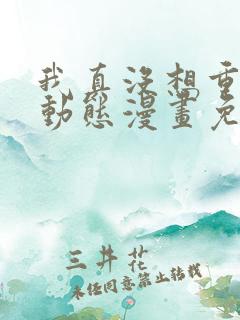 我真沒想重
動態漫畫免
三井花
未经同意禁止转载